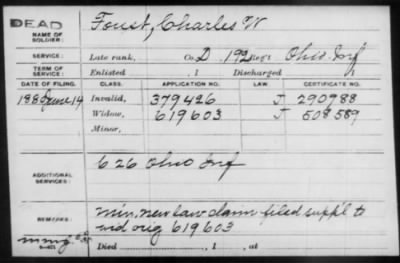 DEAD
Foust, Charles W
NAME OF SOLDIER:
SERVICE: Late rank, Co. D, 192 Reg't Ohio Inf
TERM OF SERVICE: Enlisted , 1 Discharged , 1
DATE OF FILING. CLASS. APPLICATION NO. LAW. CERTIFICATE NO.
1880 June 14 Invalid, 379426 J 290988
Widow, 619603 J 508589
Minor,
ADDITIONAL SERVICES: 626 Ohio Inf
REMARKS: Min. new law claim filed suppl. to
wid orig 619603
Died , 1 , at